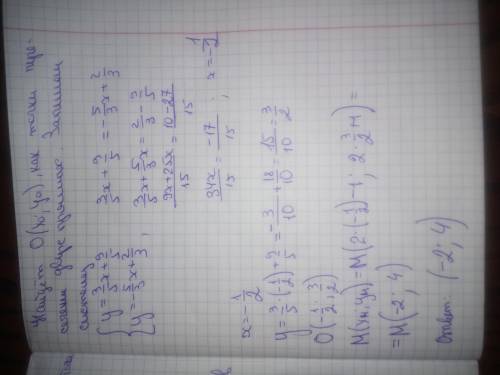 Найдём O(x₀; y₀), как точки пере-
сечения двух прямых. Запишем
систему
{ y = 3/5 x + 9/5
{ y = -5/3 x + 2/3 ;
3/5 x + 9/5 = -5/3 x + 2/3
3/5 x + 5/3 x = 2/3 - 9/5
(9x+25x)/15 = (10-27)/15
34x/15 = -17/15 ; x = -1/2
x = -1/2
y = 3/5 · (-1/2) + 9/5 = -3/10 + 18/10 = 15/10 = 3/2
O(-1/2; 3/2)
M(xм, yм) = M(2·(-1/2)-1; 2·3/2+1) =
= M(-2; 4)
Ответ: (-2; 4)